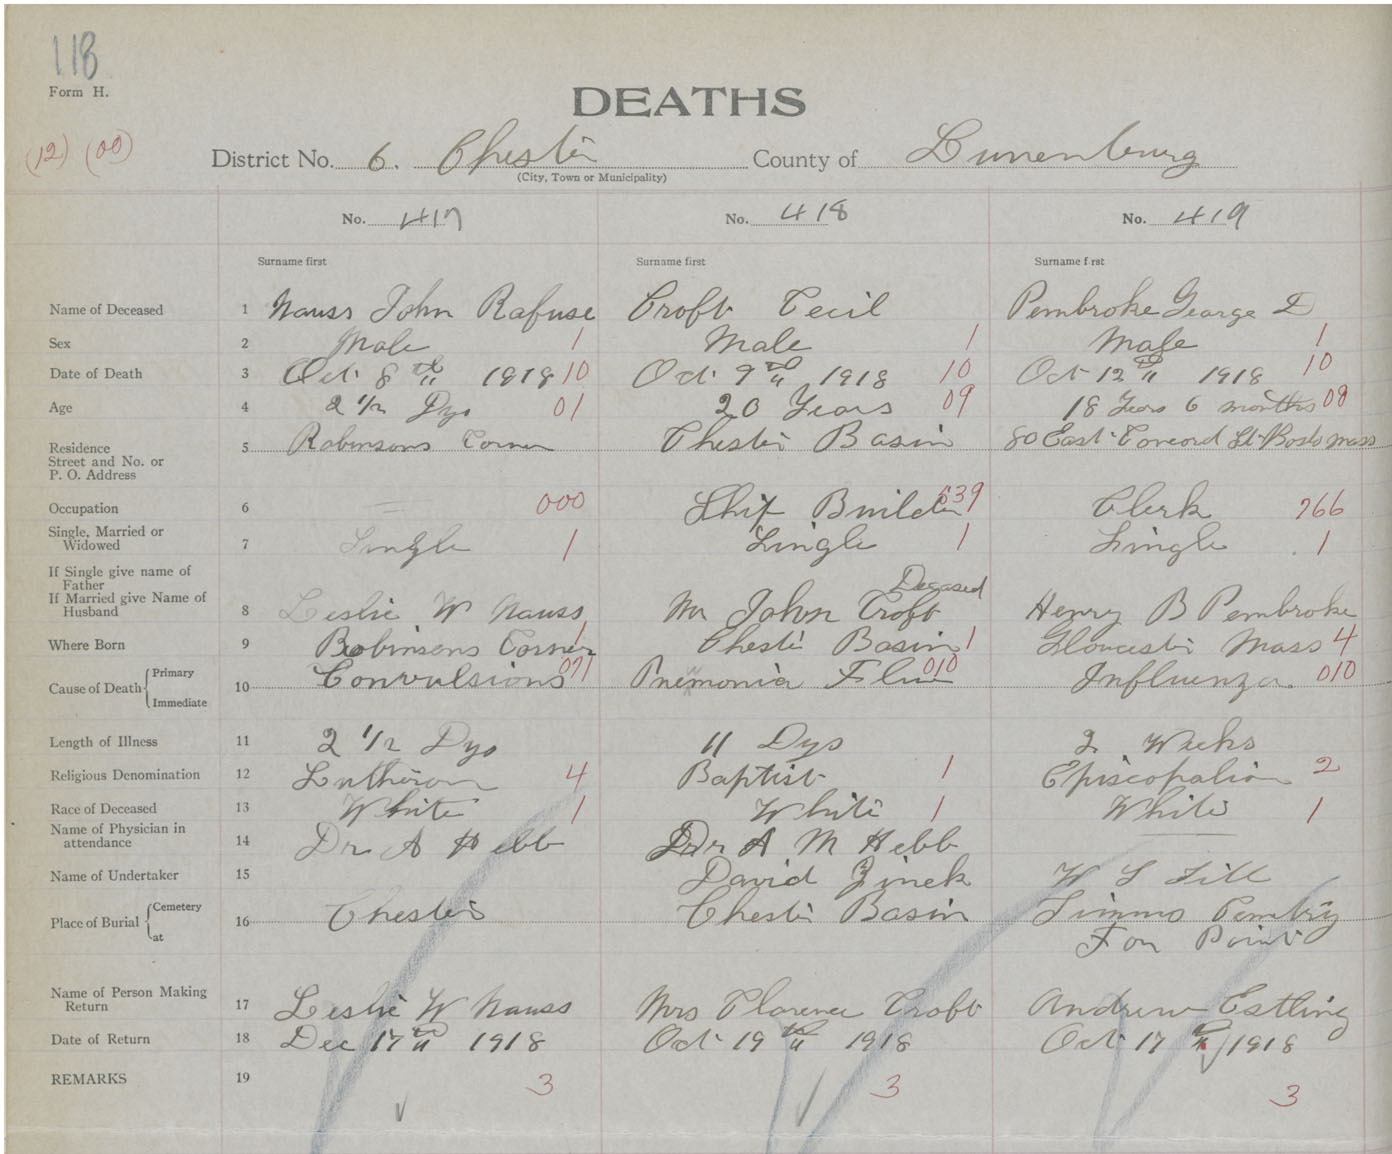 118
Form H.
DEATHS
(12) (00)
District No. 6. Chester County of Lunenburg
(City, Town or Municipality)
No. 417 No. 418 No. 419
Surname first Surname first Surname first
Name of Deceased 1 Nauss John Rafuse Croft Cecil Pembroke George D
Sex 2 Male 1 Male 1 Male 1
Date of Death 3 Oct 8th 1918 10 Oct 9th 1918 10 Oct 12th 1918 10
Age 4 2 1/2 Dys 01 20 Years 09 18 Years 6 months 08
Residence
Street and No. or
P. O. Address
5 Robinsons Corner Chester Basin 80 East Concord St Bosto mass
Occupation 6 000 Ship Builder 539 Clerk 766
Single, Married or
Widowed
7 Single 1 Single 1 Single 1
If Single give name of
Father
If Married give Name of
Husband
Deceased
8 Leslie W Nauss Mr John Croft Henry B Pembroke
Where Born 9 Robinsons Corner 1 Chester Basin 1 Gloucester Mass 4
Cause of Death { Primary
Immediate
10 Convulsions 071 Pnemonia Flue 010 Influenza 010
Length of Illness 11 2 1/2 Dys 11 Dys 2 Weeks
Religious Denomination 12 Lutheran 4 Baptist 1 Episcopalian 2
Race of Deceased 13 White 1 White 1 White 1
Name of Physician in
attendance
14 Dr A Hebb Dr A M Hebb
Name of Undertaker 15 David Zinck W L
Place of Burial { Cemetery
at
16 Chester Chester Basin
Fox Point
Name of Person Making
Return
17 Leslie W Nauss Mrs Florence Croft Andrew Estling
Date of Return 18 Dec 17th 1918 Oct 19th 1918 Oct 17th 1918
REMARKS 19 3 3 3